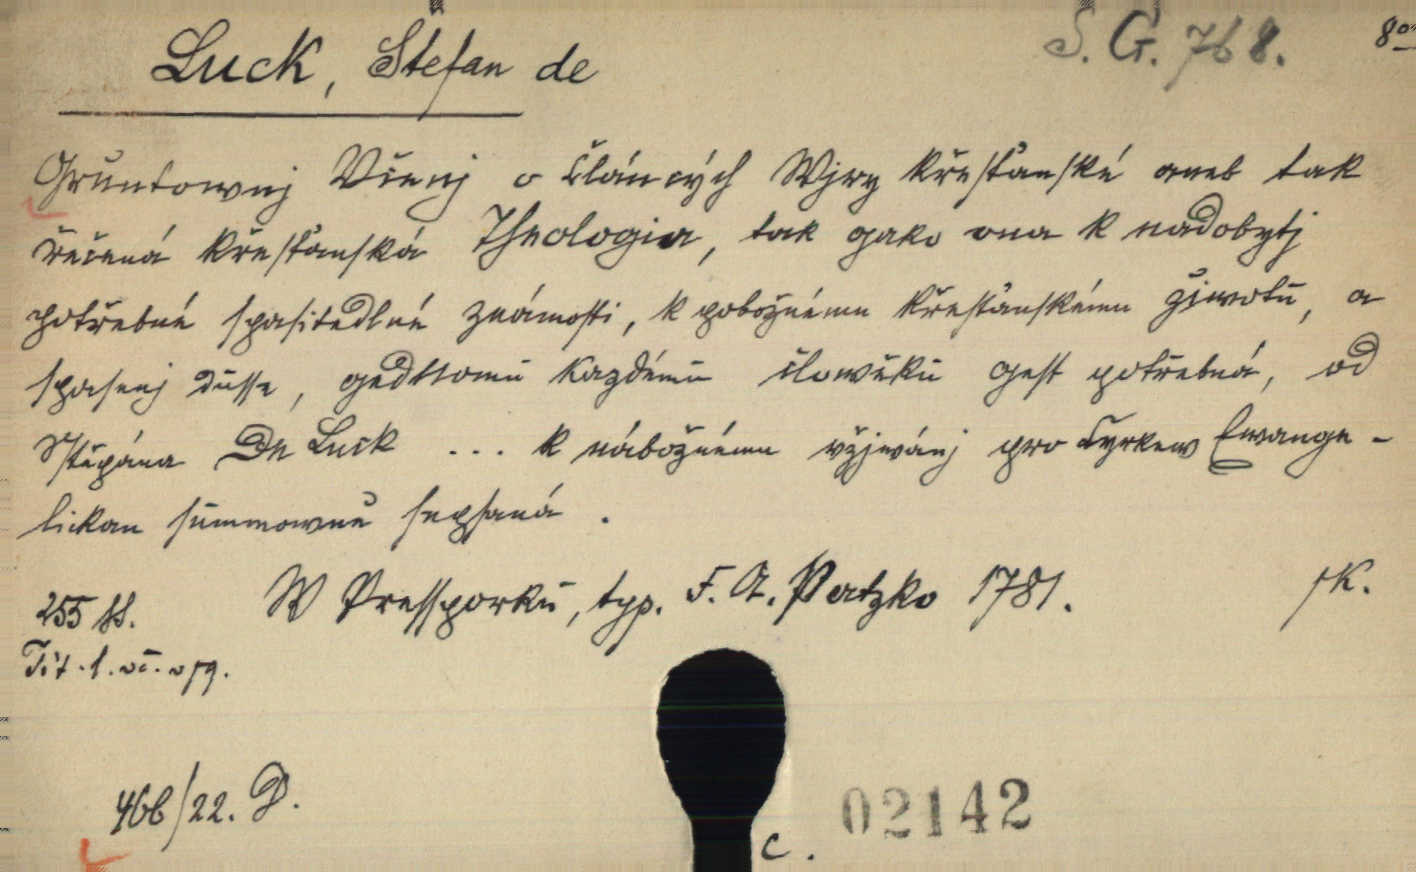 Luck, Štefan de
S. G. 768.
8°
Grůntownj Včenj o článcých Wjry křesťanské aneb tak
řečená křesťanská Theologia, tak gako ona k nadobytj
potřebné spasitedlné známosti, k pobožnému křesťanskému žiwotu, a
spasenj dusse, gedttomu každému člowěku gest potřebná, od
Sštěpána De Luck ... k nábožnému vžjwánj pro Cyrkew Ewange-
lickau summowně sepsaná.
W Pressporku, typ. F. A. Patzko 1781.
sk.
255 ss.
Tit. l.
466/22. D.
c.
02142